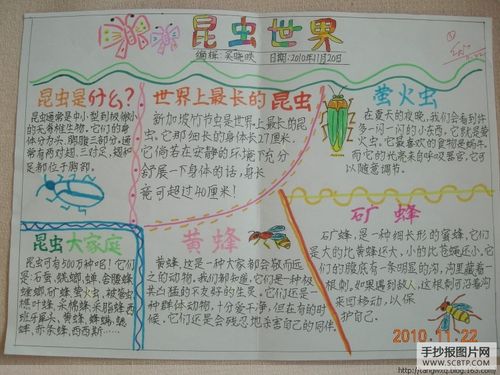 昆虫世界
编辑:吴晓映 日期:2010年11月20日
昆虫是什么?
昆虫通常是中小型到极微小
的无脊椎生物,它们的身
体分为头、胸腹三部分,通
常有两对翅,三对足,翅和
足都位于胸部。
世界上最长的昆虫
新加坡竹节虫是世界上最长的昆
虫,它那细长的身体长27厘米。
它倘若在安静的环境下充分
舒展一下身体的话,身长
竟可超过40厘米!
萤火虫
在夏天的夜晚,我们会看到许
多一闪一闪的小东西,它就是萤
火虫。它最喜欢的食物是蜗牛。
而它的光亮来自呼吸器官,它可
以随意调节。
昆虫大家庭
昆虫可有500万种呢!它们
是:石蚕、蜣螂、蝉、
黄蜂
黄蜂,这是一种大家都会敬而远
之的动物,我们都知道,它们是一种极
其凶猛的不友好的生灵。它们还是一
种群体动物,十分蛮不讲理,但在有的时
候,它们还是会残忍地杀害自己的同伴。
矿蜂
矿蜂,是一种细长形的蜜蜂,它们
是大的比黄蜂还大,小的比苍蝇还小,它
们的腹底有一条明显的沟,沟里藏着一
根刺,如果遇到敌人,这根刺可沿着沟
来回移动,以保
护自己。
2010.11.22
手抄报图片网
WWW.SCBTP.COM
http://tangwxq.blog.163.com/